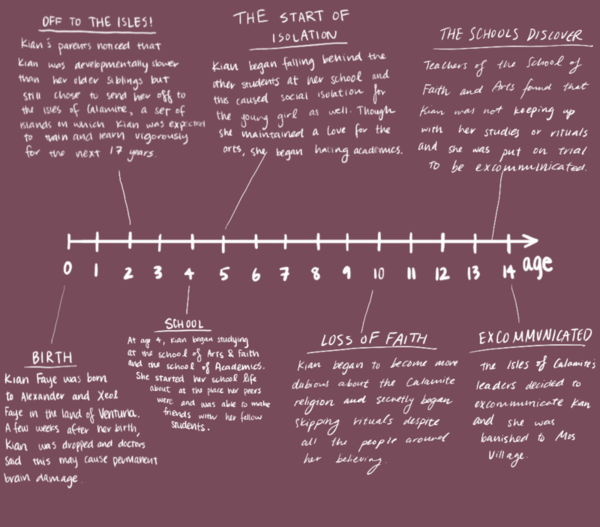 OFF TO THE ISLES!
Kian's parents noticed that
Kian was developmentally slower
than her older siblings but
still chose to send her off to
the isles of Calamite, a set of
islands in which Kian was expected
to train and learn vigorously
for the next 17 years.
THE START OF
ISOLATION
Kian began falling behind the
other students at her school and
this caused social isolation for
the young girl as well. Though
she maintained a love for the
arts, she began hating academics.
THE SCHOOLS DISCOVER
Teachers of the School of
Faith and Arts found that
Kian was not keeping up
with her studies or rituals
and she was put on trial
to be excommunicated.
0 1 2 3 4 5 6 7 8 9 10 11 12 13 14 age
BIRTH
Kian Faye was born
to Alexander and Xeol
Faye in the land of Ventuna.
A few weeks after her birth,
Kian was dropped and doctors
said this may cause permanent
brain damage
SCHOOL
At age 4, Kian began studying
at the school of Arts & Faith
and the school of Academics.
She started her school life
about at the pace her peers
were and was able to make
friends with her fellow
students.
LOSS OF FAITH
Kian began to become more
dubious about the Calamite
religion and secretly began
skipping rituals despite
all the people around
her believing.
EXCOMMUNICATED
The Isles of Calamite's
leaders decided to
excommunicate Kian
and she was
banished to Mos
Village.